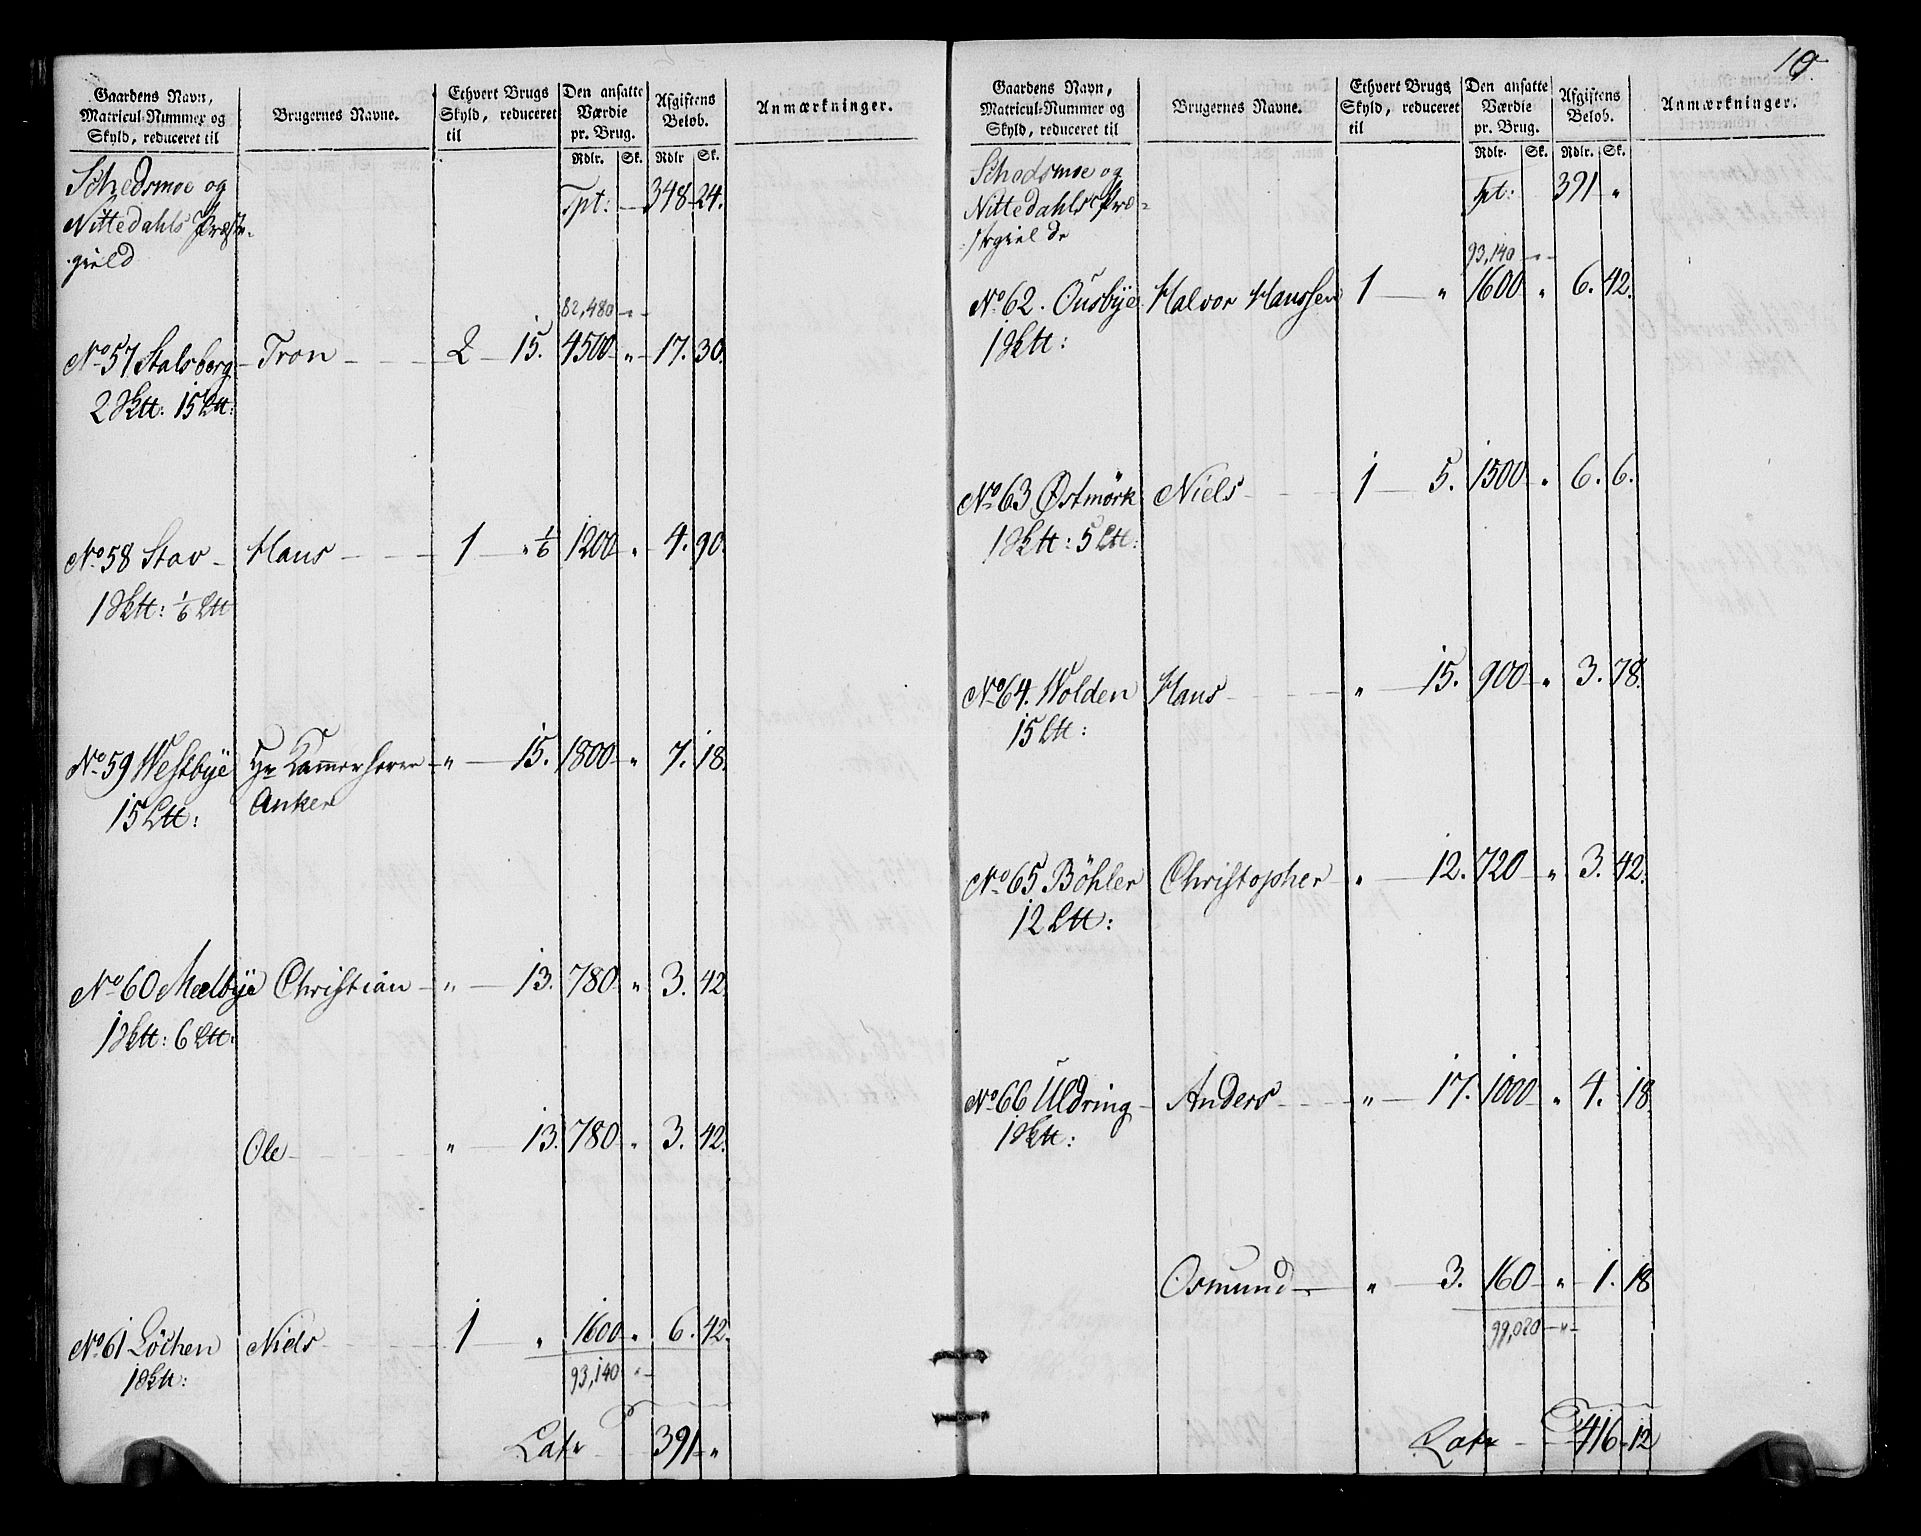 Gaardens Navn, Matricul-Nummer og Skyld, reduceret til | Brugernes Navne. | Ethvert Brugs Skyld, reduceret til | Den ansatte Værdie pr. Brug. | Afgiftens Beløb. | Anmærkninger.
Rdlr. | Sk. | Rdlr | Sk.
Schedsmoe og Tpt: 348 24.
Nittedahls Præste-
gield
82,480 -"-
No 57 Stalsberg Tron 2 15. 4500 " 17. 30.
2 Sktt: 15 Ltt:
No 58 Stav Hans 1 " 1/6 1200 " 4. 90.
1 Sktt: 1/6 Ltt
No 59 Westbÿe Hr Kammerherre " 15. 1800 " 7. 18.
15 Ltt: Anker
No 60 Mælbÿe Christian " 13. 780 " 3. 42.
1 Sktt: 6 Ltt:
Ole " 13. 780 " 3. 42.
No 61 Löchen Niels 1 " 1600 " 6. 42.
1 Sktt:
93,140 "
Latr 391 "
10.
Gaardens Navn, Matricul-Nummer og Skyld, reduceret til | Brugernes Navne. | Ethvert Brugs Skyld, reduceret til | Den ansatte Værdie pr. Brug. | Afgiftens Beløb. | Anmærkninger.
Rdlr. | Sk. | Rdlr. | Sk.
Schedsmoe og Tpt: 391 "
Nittedahls Præ-
stegield
93,140 -"-
No 62. Ousbye Halvor Hanssen 1 " 1600 " 6. 42.
1 Sktt:
No 63 Østmörk Niels 1 5. 1500 " 6. 6.
1 Sktt: 5 Ltt:
No 64. Wolden Hans " 15. 900 " 3. 78.
15 Ltt:
No 65 Böhler Christopher " 12. 720 " 3. 42.
12 Ltt:
No 66 Uldring Anders " 17. 1000 " 4. 18.
1 Sktt:
Osmund " 3. 160 " 1. 18
99,020 -"-
Latr 416 12